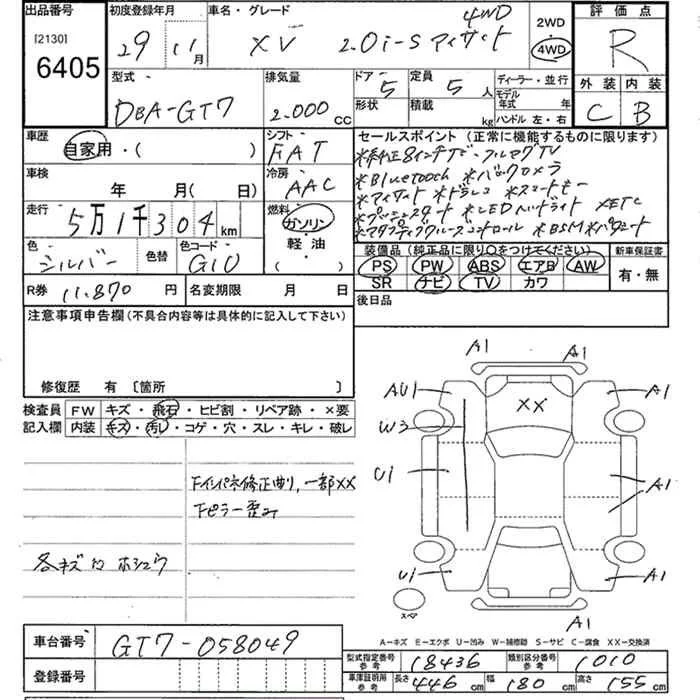 出品番号 初度登録年月 車名・グレード 評価点
[2130]
6405
29 11月 XV 2.0i-S アイサイト 4WD
2WD
4WD
R
型式 排気量 ドア 定員 ディーラー・並行 外装 内装
DBA-GT7 2.000cc 5 5人
形状 積載 kg モデル年式 年
ハンドル 左・右
C B
車歴 シフト セールスポイント(正常に機能するものに限ります)
自家用・( ) FAT
*純正8インチナビ・フルセグTV
*Bluetooth *バックカメラ
車検 年 月(日) 冷房 AAC
*アイサイト *ドラレコ *スマートキー
*プッシュスタート *LEDヘッドライト *ETC
*アダプティブクルーズコントロール *BSM
走行 5万1千304km 燃料 ガソリン
軽油
( )
色 シルバー 色替 色コード G1U
装備品(純正品に限り○をつけてください) 新車保証書
PS PW ABS エアB AW 有・無
SR ナビ TV カワ
R券 11.870円 名変期限 月 日 後日品
注意事項申告欄(不具合内容等は具体的に記入して下さい)
修復歴 有 〔箇所 〕
検査員 FW キズ・飛石・ヒビ割・リペア跡・×要
記入欄 内装 キズ・汚レ・コゲ・穴・スレ・キレ・破レ
Fインパネ修正曲り、一部XX
Fピラー歪み
各キズ凹 ホシュウ
A1 A1
AU1 XX A1
W3
U1 A1
U1 A1
スペア A1
A-キズ E-エクボ U-凹み W-補修跡 S-サビ C-腐食 XX-交換済
車台番号 GT7-058049
型式指定番号 参考 18436 類別区分番号 参考 1010
登録番号
車庫証明用 参考 長さ 446cm 幅 180cm 高さ 155cm